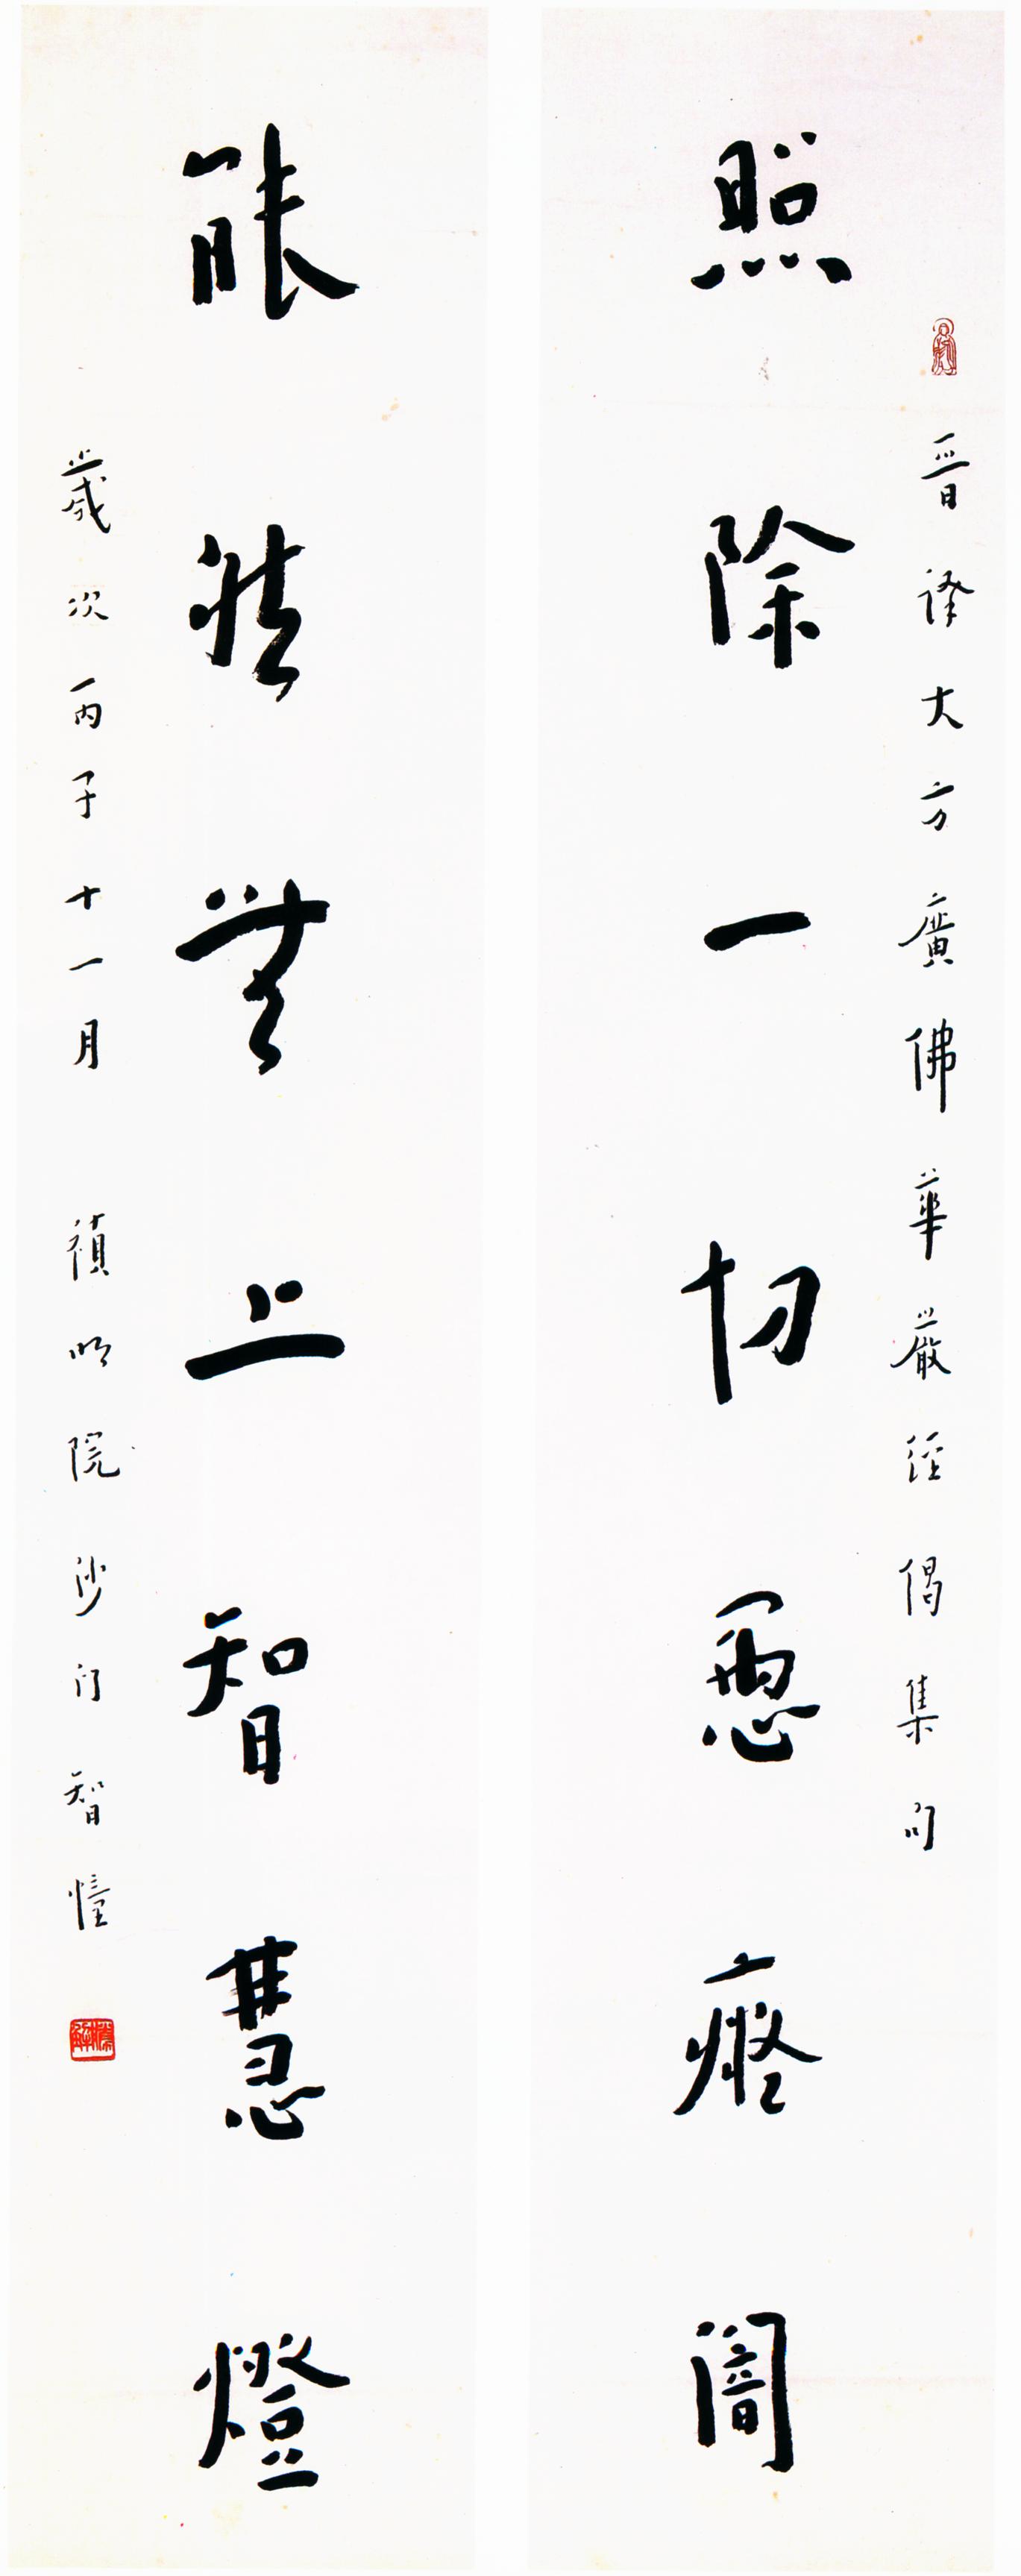 晉譯大方廣佛華嚴經偈集句
照除一切惡癡闇
能然無上智慧燈
歲次丙子十一月 禎明院沙門智憧
勝解